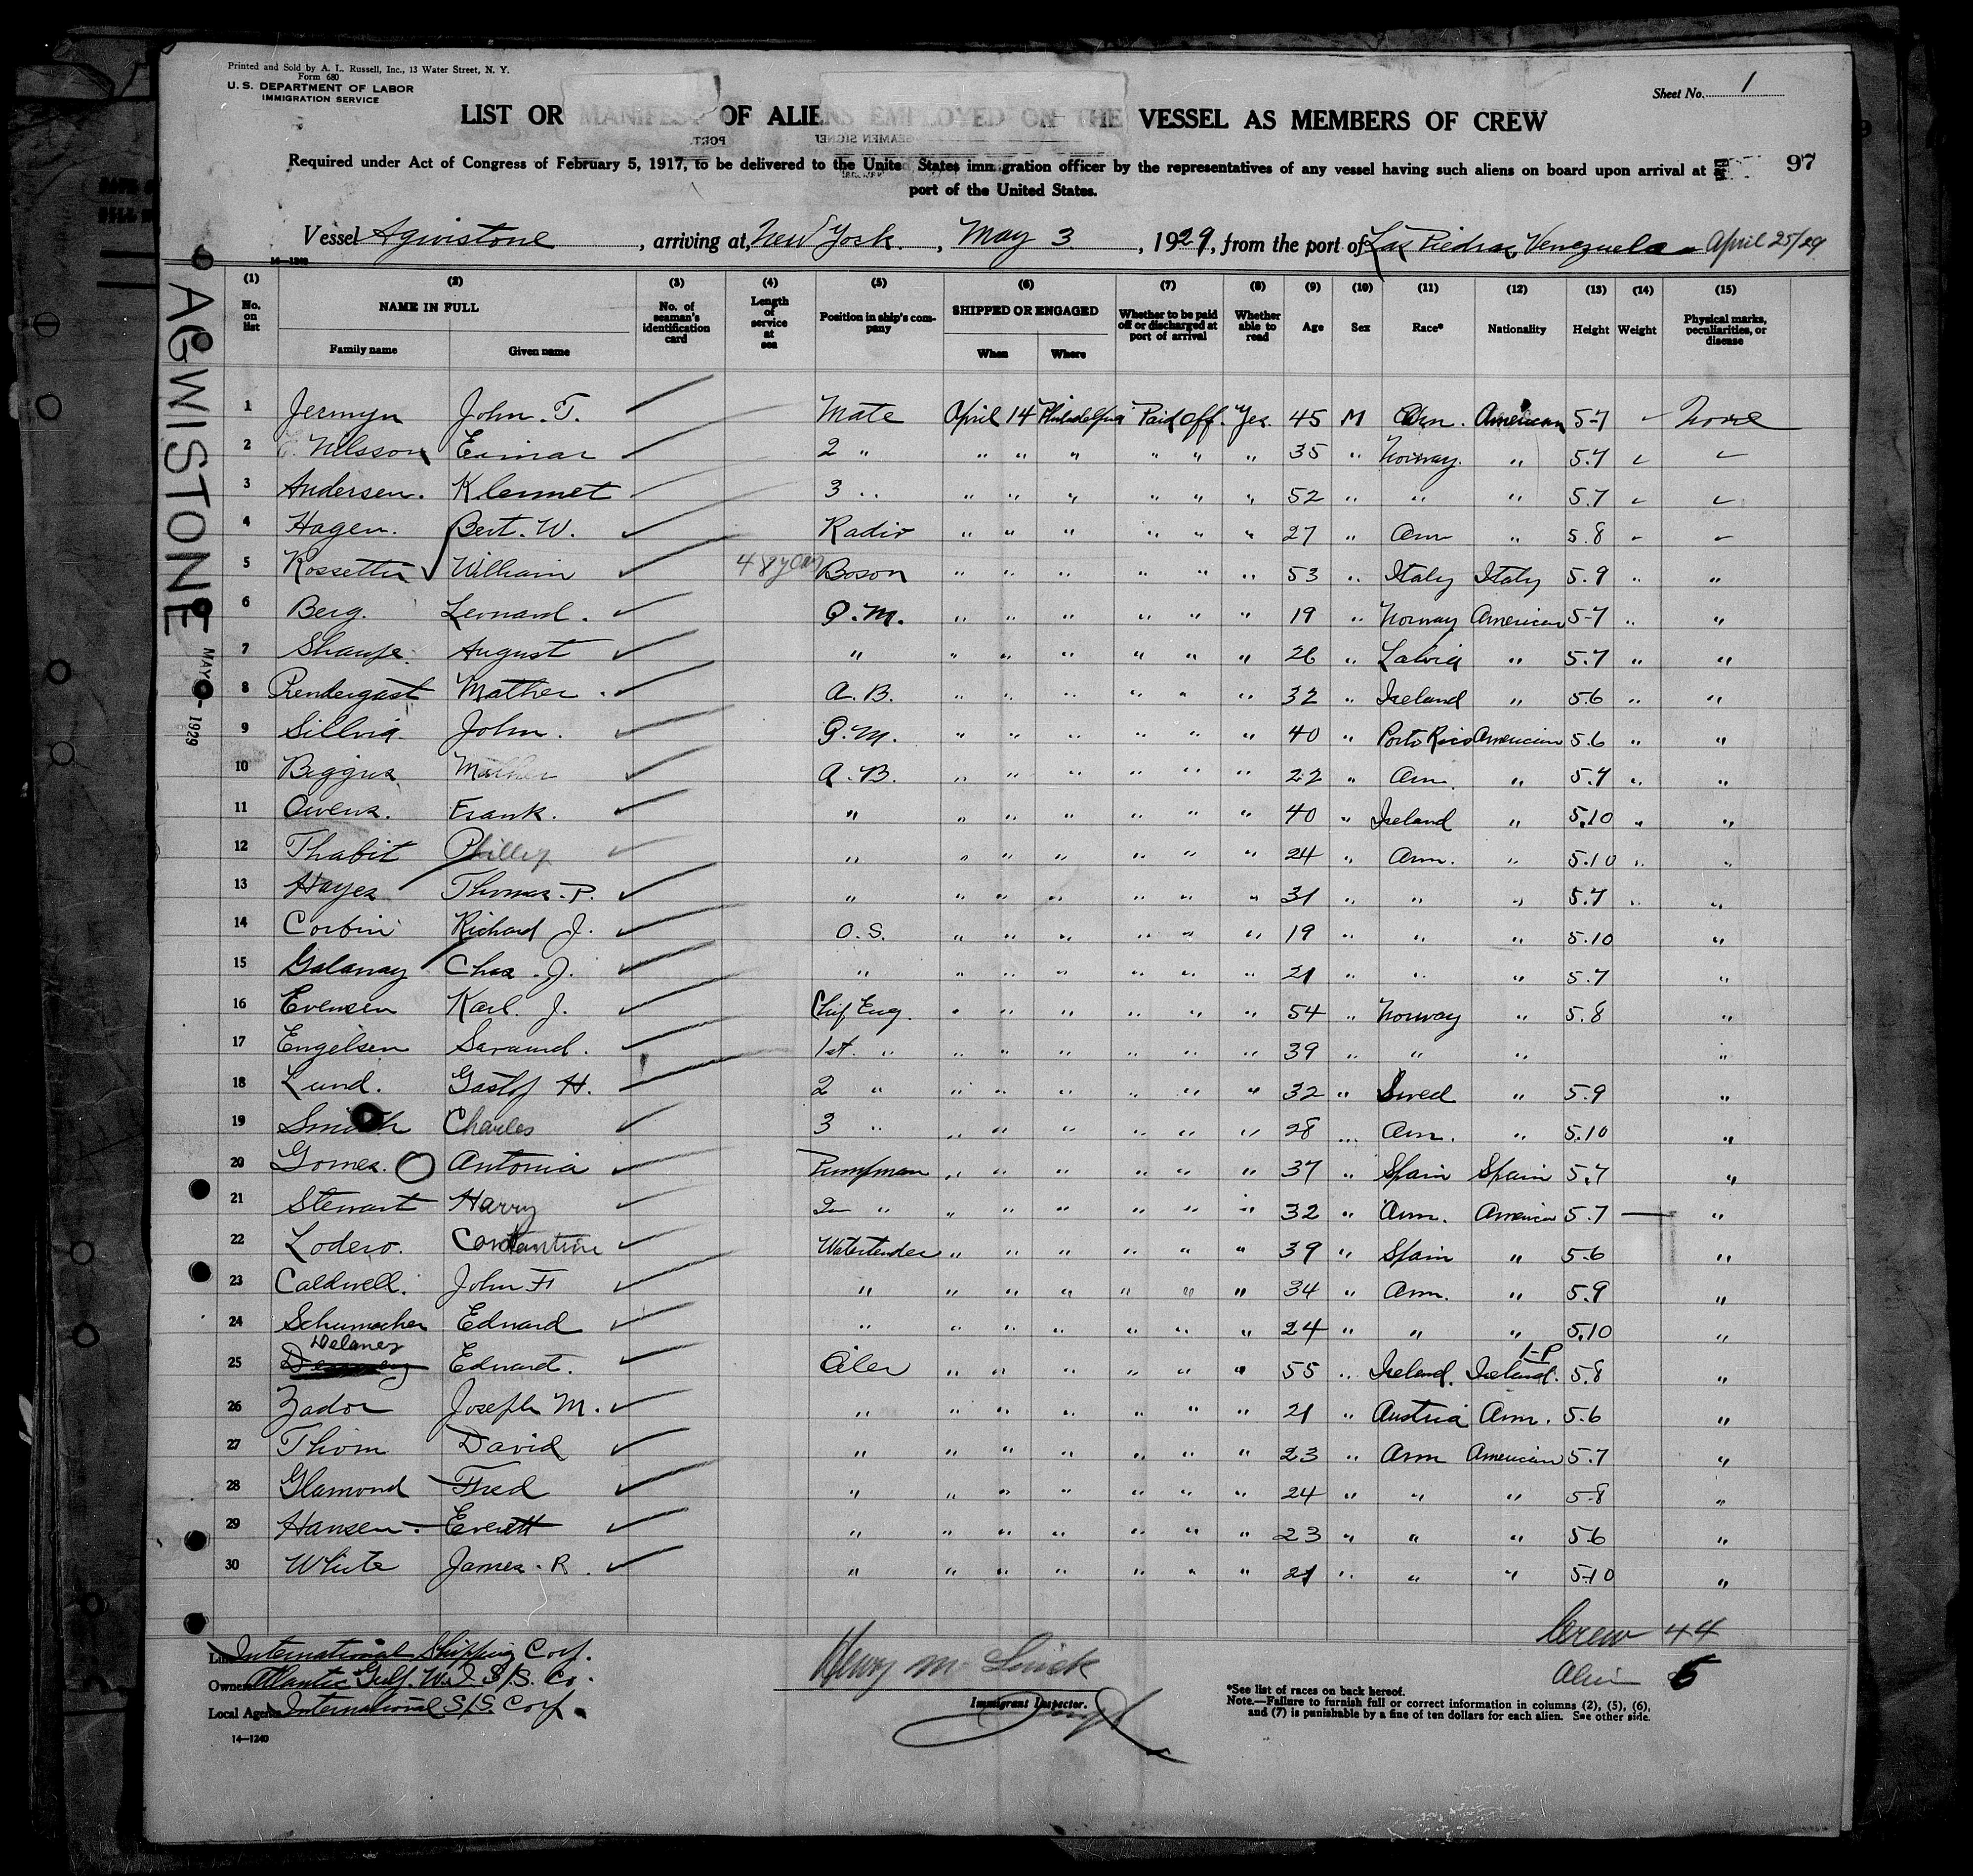 Printed and Sold by A. L. Russell, Inc., 13 Water Street, N. Y.
Form 680
U. S. DEPARTMENT OF LABOR
IMMIGRATION SERVICE
Sheet No. 1
LIST OR MANIFEST OF ALIENS EMPLOYED ON THE VESSEL AS MEMBERS OF CREW
PORT.
Required under Act of Congress of February 5, 1917, to be delivered to the United States immigration officer by the representatives of any vessel having such aliens on board upon arrival at 97
port of the United States.
Vessel Agwistone, arriving at, New York, May 3, 1929, from the port of Las Piedras, Venezuela - April 25/29
14—1240
AGWISTONE
MAY - 1929
(1) (2) (3) (4) (5) (6) (7) (8) (9) (10) (11) (12) (13) (14) (15)
No. on list NAME IN FULL Family name Given name No. of seaman's identification card Length of service at sea Position in ship's company SHIPPED OR ENGAGED When Where Whether to be paid off or discharged at port of arrival Whether able to read Age Sex Race* Nationality Height Weight Physical marks, peculiarities, or disease
1 Jermyn John. T. Mate April 14 Philadelphia Paid Off. Yes. 45 M Am. American 5-7 None
2 Nilsson Einar 2 " " " " " " " 35 " Norway. " 5.7
3 Andersen. Klemmet 3 " " " " " " " 52 " " " 5.7
4 Hagen. Bert. W. Radio " " " " " " 27 " Am " 5.8
5 Rossetti William 48 years Boson " " " " " " 53 " Italy Italy 5.9 " "
6 Berg. Leonard. Q. M. " " " " " " 19 " Norway American 5-7 " "
7 August " " " " " " " 26 " Latvia " 5.7 " "
8 Prendergast Mather A. B. " " " " " " 32 " Ireland " 5.6 " "
9 Sillvia. John. Q. M. " " " " " " 40 " Porto Rico American 5.6 " "
10 Biggus Mather A. B. " " " " " " 22 " Am. " 5.7 " "
11 Owens. Frank. " " " " " " " 40 " Ireland " 5.10 " "
12 Thabit Phillip " " " " " " " 24 " Am. " 5.10 " "
13 Hayes Thomas. P. " " " " " " " 31 " " " 5.7 " "
14 Corbin Richard J. O. S. " " " " " " 19 " " " 5.10 "
15 Galaway Chas. J. " " " " " " " 21 " " " 5.7 "
16 Evensen Karl. J. Chif Eng. " " " " " " 54 " Norway " 5.8 "
17 Engelsen 1st. " " " " " " " 39 " " " "
18 Lund. Gastof H. 2 " " " " " " " 32 " Swed " 5.9 "
19 Smith Charles 3 " " " " " " " 28 " Am. " 5.10 "
20 Gomes. Antonia Pumpman " " " " " " 37 " Spain Spain 5.7 "
21 Stewart Harry 2 " " " " " " " 32 " Am. American 5.7 — "
22 Lodero. Constantine Watertender " " " " " " 39 " Spain " 5.6 "
23 Caldwell. John F " " " " " " " 34 " Am. " 5.9 "
24 Schumacher Edward " " " " " " " 24 " " " 5.10 "
Delaney
25 Edward. Oiler " " " " " " 55 " Ireland. Ireland. 5.8 "
26 Zador Joseph M. " " " " " " " 21 " Austria Am. 5.6 "
27 Thom David " " " " " " " 23 " Am American 5.7 "
28 Glamond Fred " " " " " " " 24 " " " 5-8 "
29 Hansen. Everett " " " " " " " 23 " " " 5.6 "
30 White James. R. " " " " " " " 21 " " " 5-10 "
Crew 44
Alien 5
Line International Shipping Corp.
Owners Atlantic Gulf. W. I. S/S. Co.
Local Agents International S/S. Corp.
14—1240
Henry
Immigrant Inspector.
*See list of races on back hereof.
Note.—Failure to furnish full or correct information in columns (2), (5), (6),
and (7) is punishable by a fine of ten dollars for each alien. See other side.